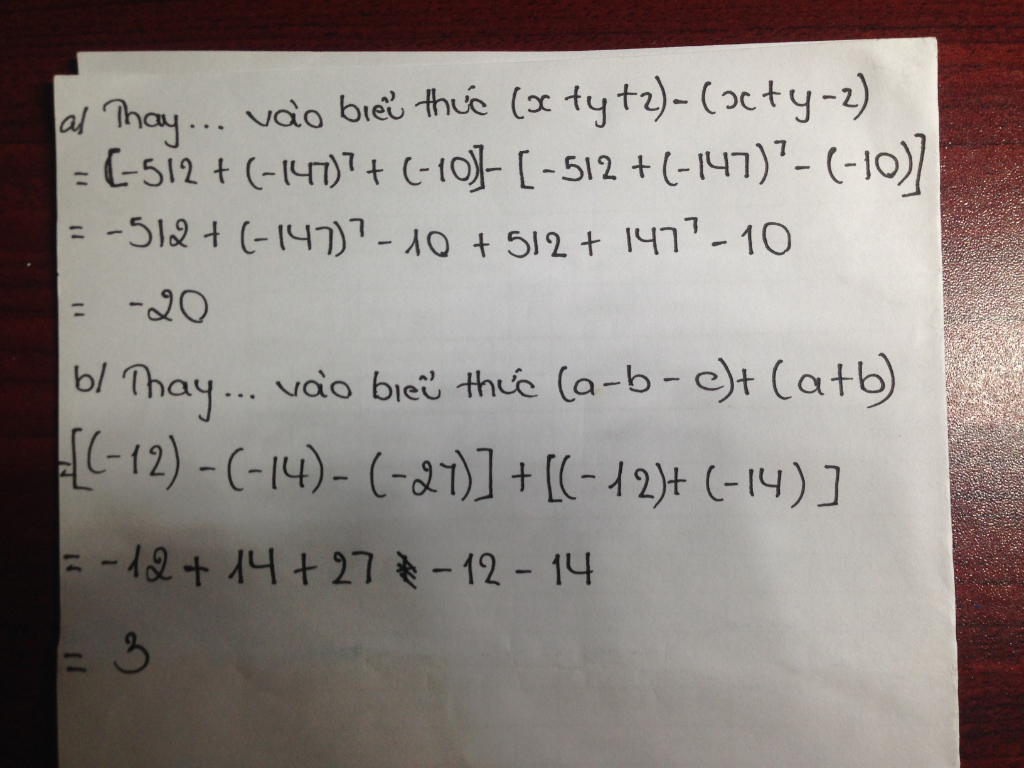 a/ Thay... vào biểu thức (x+y+z)-(x+y-z)
= [-512 + (-147)⁷ + (-10)] - [-512 + (-147)⁷ - (-10)]
= -512 + (-147)⁷ - 10 + 512 + 147⁷ - 10
= -20
b/ Thay... vào biểu thức (a-b-c)+(a+b)
=[(-12) - (-14) - (-27)] + [(-12)+ (-14)]
= -12 + 14 + 27 - 12 - 14
= 3